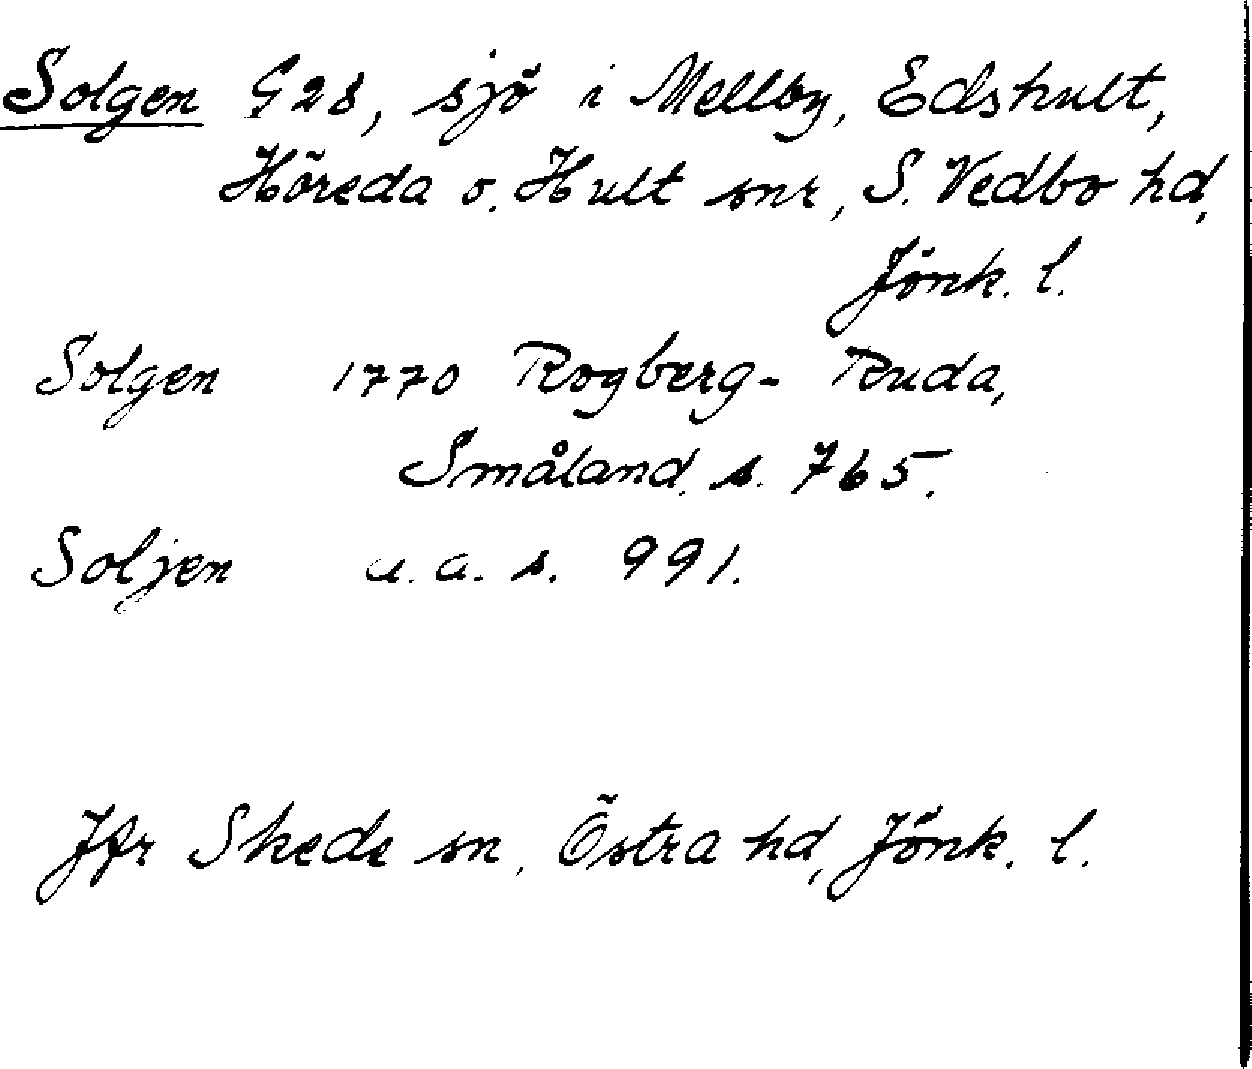 Solgen G28, sjö i Mellby, Edshult,
Höreda o. Hult snr, S. Vedbo hd,
Jönk. l.
Solgen 1770 Rogberg-Ruda,
Småland, s. 765.
Soljen u.a. s. 991.
Jfr Skeds sn, Östra hd, Jönk. l.